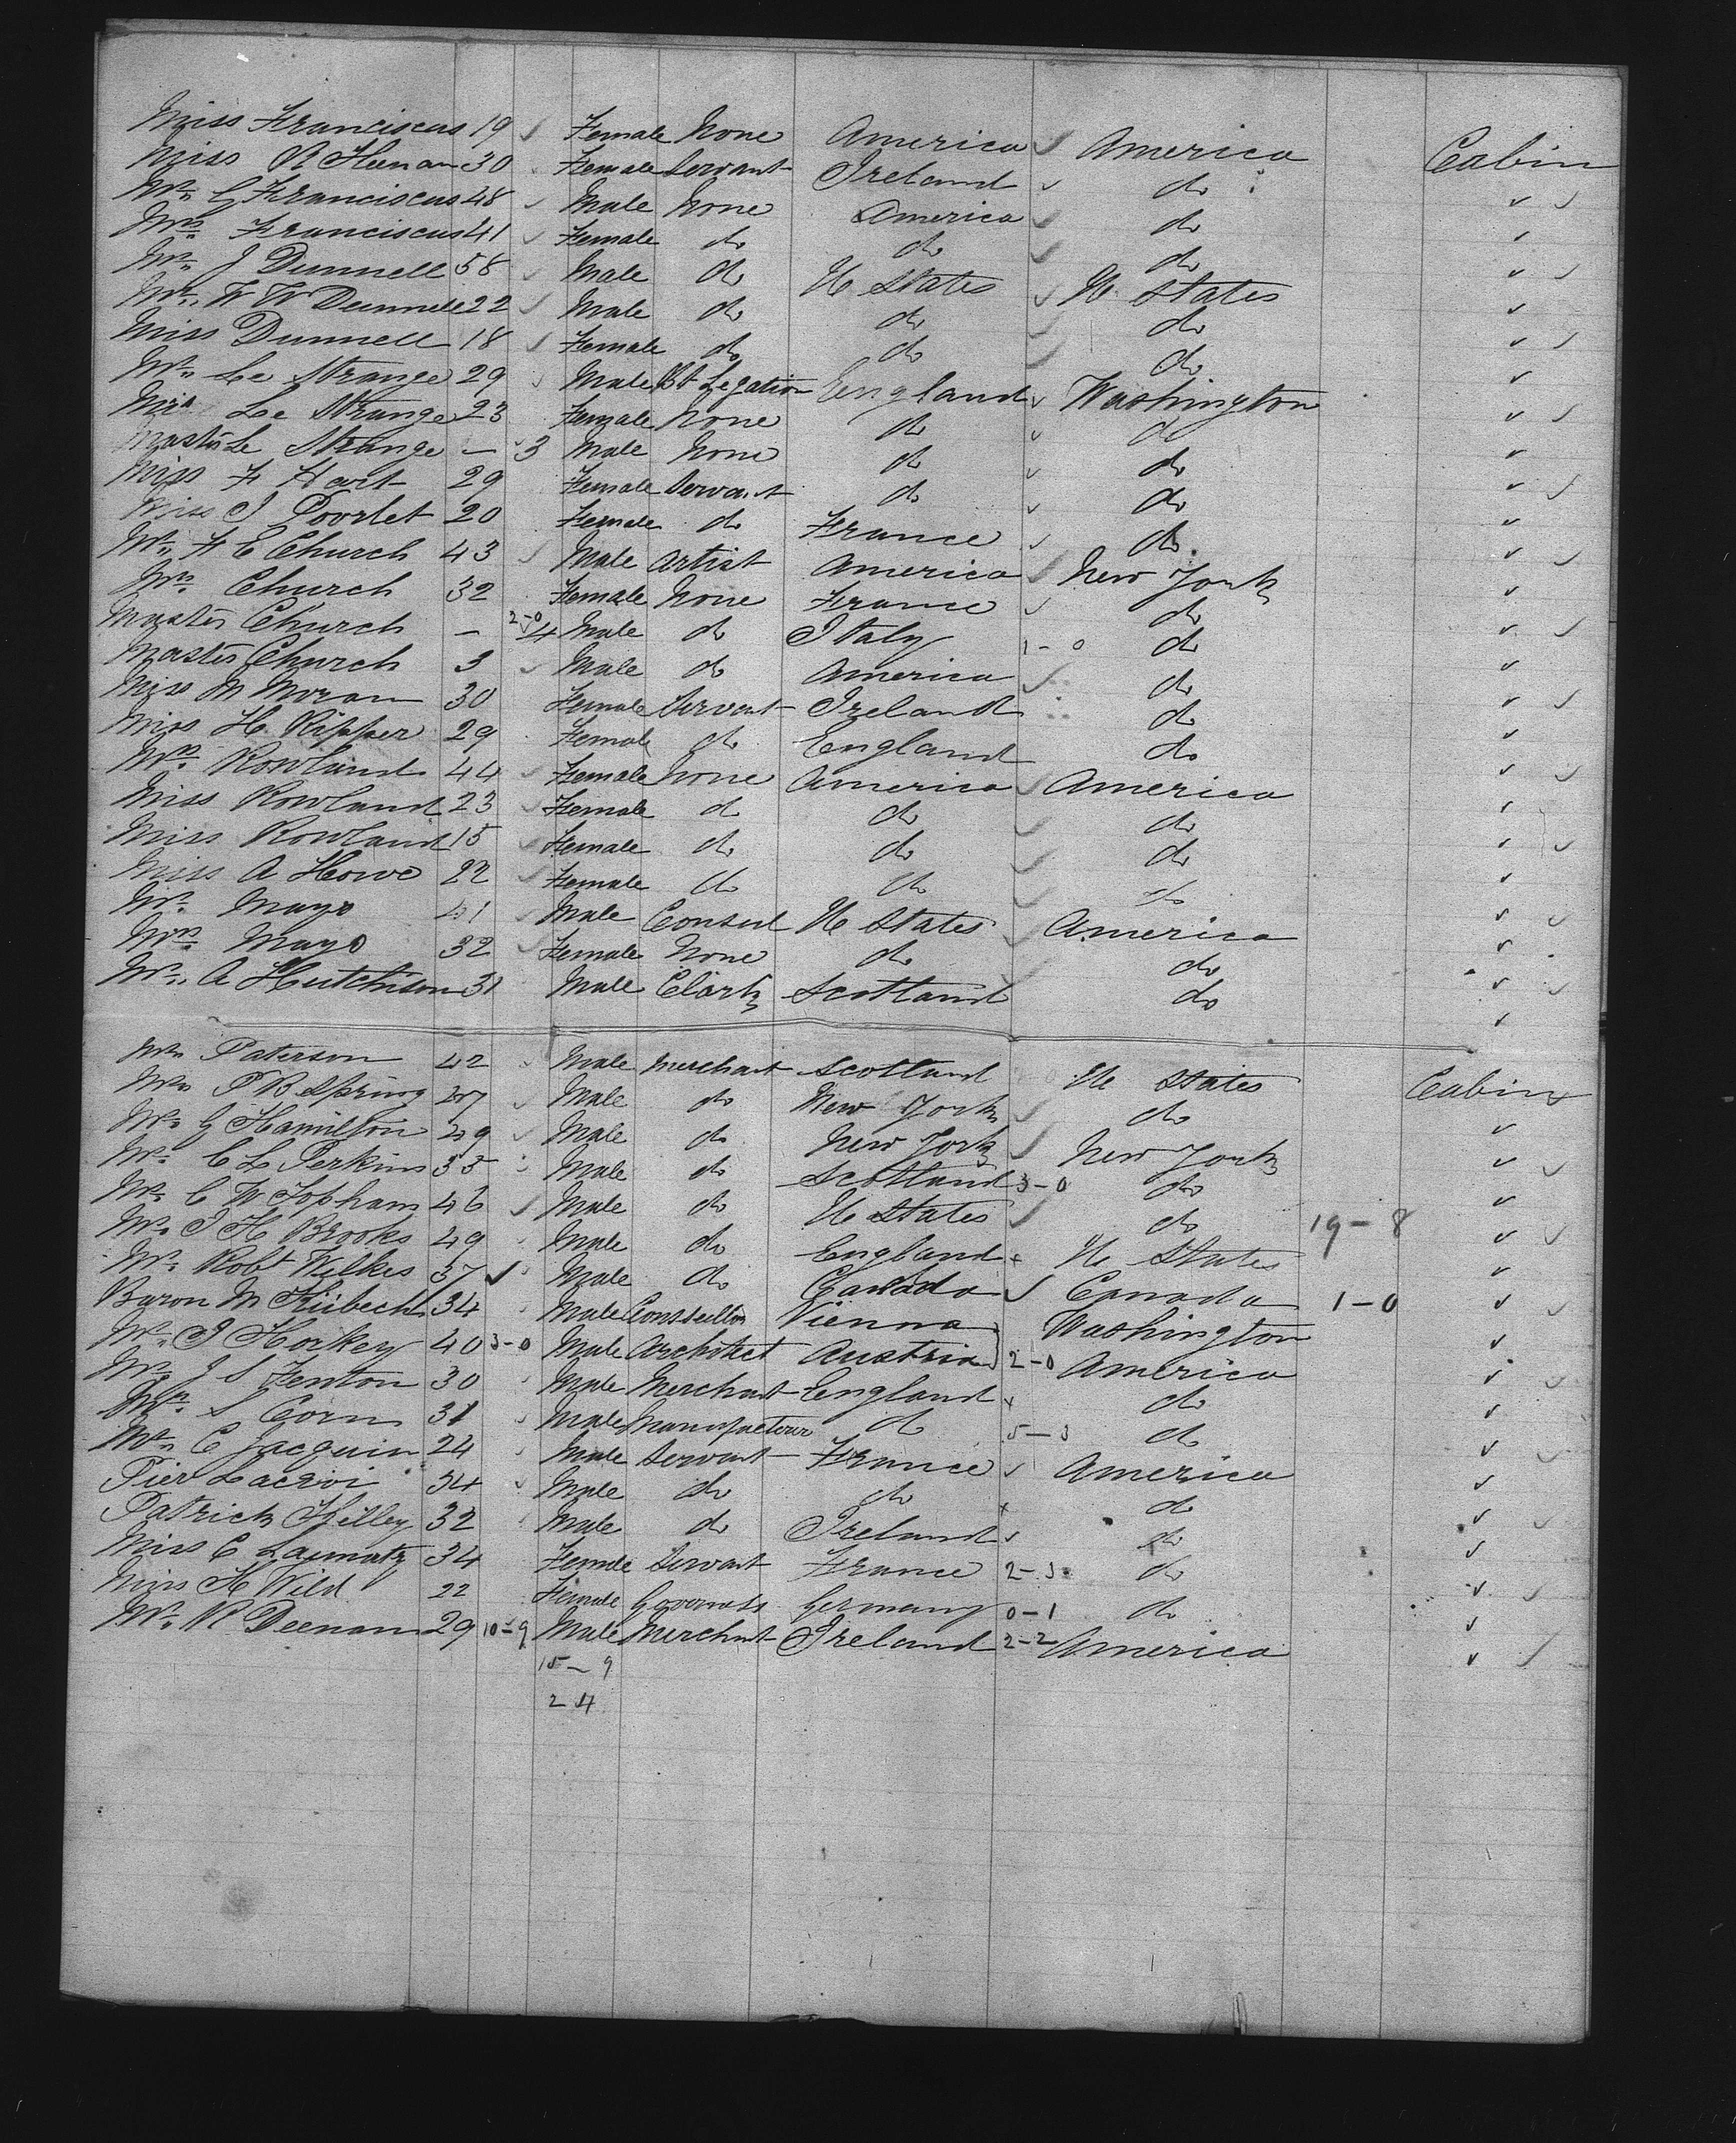 Miss Franciscus 19 Female None America America Cabin
Miss R Heenan 30 Female Servant Ireland do
Mr. G Franciscus 48 Male None America do
Mrs. Franciscus 41 Female do do do
Mr. J Dunnell 58 Male do U States U States
Mr. W W Dunnell 22 Male do do do
Miss Dunnell 18 Female do do do
Mr. Le Strange 29 Male Bt Legation England Washington
Mrs Le Strange 23 Female None do do
Master Le Strange — 3 Male None do do
Miss F Hart 29 Female Servant do do
Miss J Poorlet 20 Female do France do
Mr. F E Church 43 Male Artist America New York
Mrs. Church 32 Female None France do
Master Church — 2-0 4 Male do Italy 1-0 do
Master Church 3 Male do America do
Miss M Moran 30 Female Servant Ireland do
Miss H. Ripper 29 Female do England do
Mrs. Rowland 44 Female None America America
Miss Rowland 23 Female do do do
Miss Rowland 15 Female do do do
Miss A Howe 22 Female do do do
Mr. Mayo 41 Male Consul U States America
Mrs Mayo 32 Female None do do
Mr. A Hutchison 31 Male Clark Scotland do
Mr. Paterson 42 Male Merchant Scotland U States Cabin
Mr. P B Spring 27 Male do New York do
Mr. G Hamilton 29 Male do New York New York
Mr. C L Perkins 35 Male do Scotland 3-0 do
Mr. C W Topham 46 Male do U States do 19-8
Mr. J H Brooks 49 Male do England U States
Mr. Robt Wilkes 37 Male do Canada Canada 1-0
Baron M Kübech 34 Male Vienna Washington
Mr. J Horkey 40 3-0 Male Architect Austria 2-0 America
Mr. J S Fenton 30 Male Merchant England do
Mr. S Corn 31 Male Manufacturer do 5-3 do
Mr. C Jacquin 24 Male Servant France America
Pier Lacroi 34 Male do do do
Patrick Killey 32 Male do Ireland do
Miss C 34 Female Servant France 2-3 do
Miss H Wild 22 Female Governess Germany 0-1 do
Mr. R Deenan 29 10-9 Male Merchant Ireland 2-2 America
15-9
24